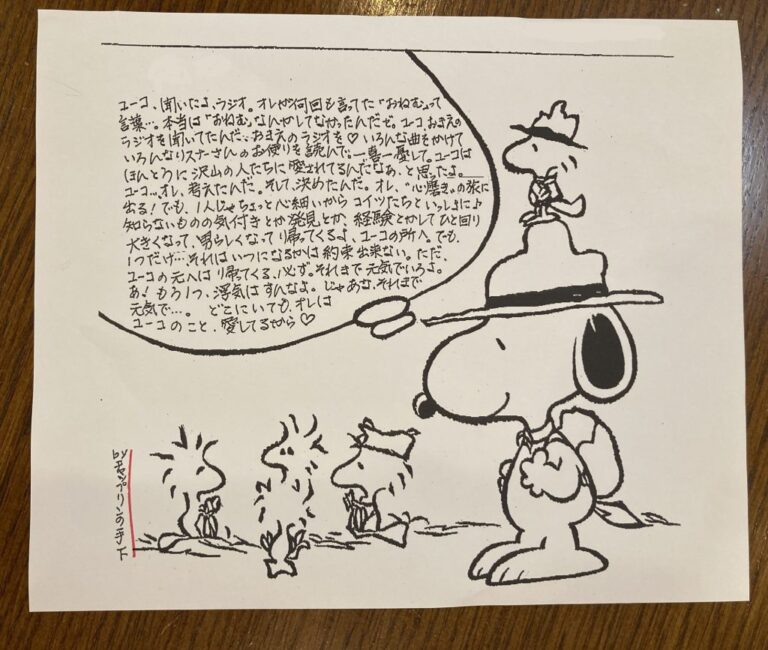 ユーコ、聞いたよ、ラジオ。オレが何回も言ってた「おねむ」って
言葉…。本当は「おねむ」なんかしてなかったんだぜ。ユーコ、おまえの
ラジオを聞いてたんだ…おまえのラジオを♡いろんな曲をかけて
いろんなリスナーさんのお便りを読んで…一喜一憂して。ユーコは
ほんとうに沢山の人たちに愛されてるんだなぁ、と思ったよ。
ユーコ…オレ、考えたんだ。そして、決めたんだ。オレ、“心磨き”の旅に
出る!でも、1人じゃちょっと心細いからコイツたちといっしょに♪
知らないものの気付きとか発見とか、経験とかしてひと回り
大きくなって、男らしくなって帰ってくるよ、ユーコの所へ。でも、
1つだけ…それはいつになるかは約束出来ない。ただ、
ユーコの元へは帰ってくる、必ず。それまで元気でいろよ。
あ!もう1つ、浮気はすんなよ。じゃあな、それまで
元気で…。どこにいても、オレは
ユーコのこと、愛してるから♡
byチャップリンの手下